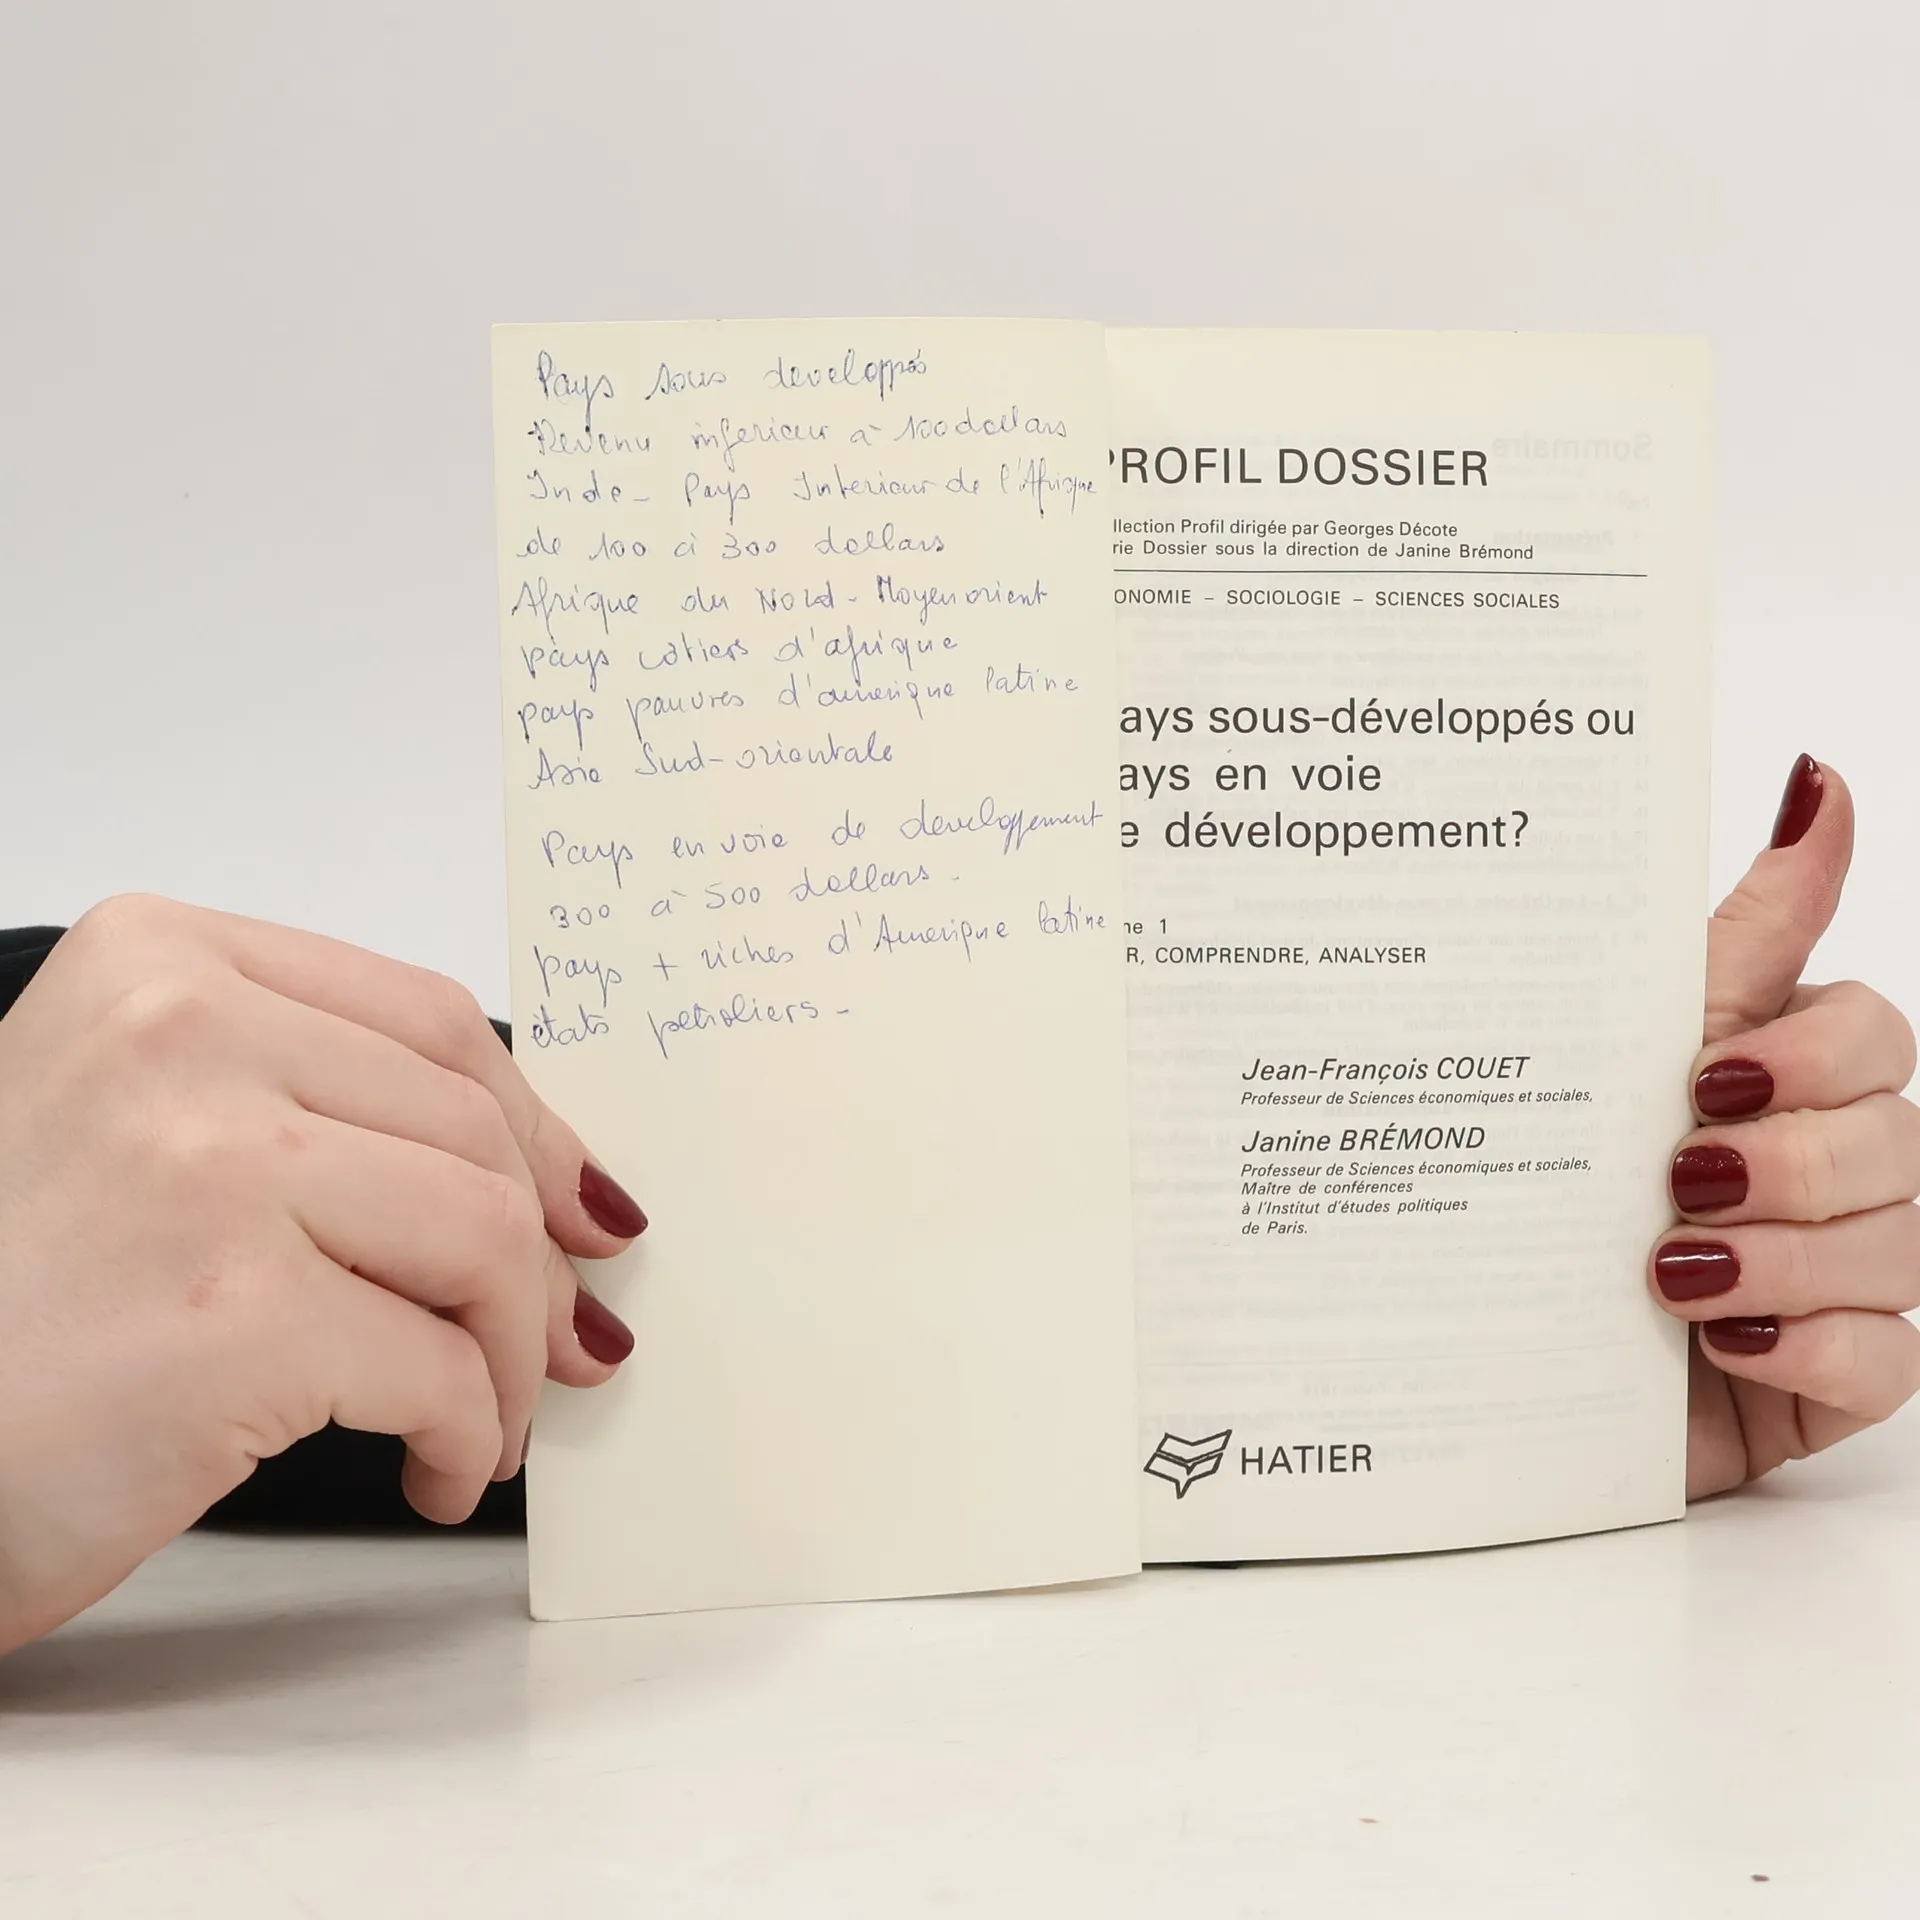 Pays sous developpés
Revenu inferieur à 100 dollars
Inde - Pays Interieur de l'Afrique
de 100 à 300 dollars
Afrique du Nord - Moyen orient
pays côtiers d'afrique
pays pauvres d'amerique latine
Asie Sud-orientale
Pays en voie de developpement
300 à 500 dollars.
pays + riches d'Amerique latine
états petroliers -
PROFIL DOSSIER
llection Profil dirigée par Georges Décote
rie Dossier sous la direction de Janine Brémond
ONOMIE – SOCIOLOGIE – SCIENCES SOCIALES
ays sous-développés ou
ays en voie
e développement?
ne 1
R, COMPRENDRE, ANALYSER
Jean-François COUET
Professeur de Sciences économiques et sociales,
Janine BRÉMOND
Professeur de Sciences économiques et sociales,
Maître de conférences
à l'Institut d'études politiques
de Paris.
HATIER